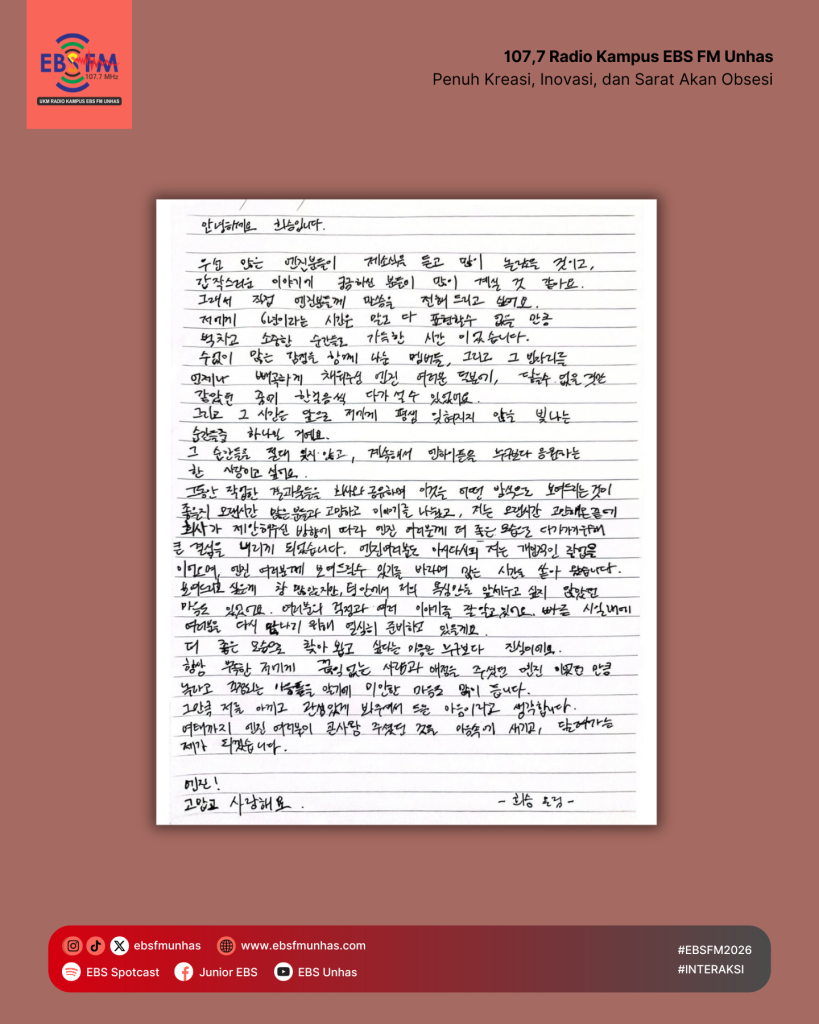 EBSFM
107.7 MHz
UKM RADIO KAMPUS EBS FM UNHAS
107,7 Radio Kampus EBS FM Unhas
Penuh Kreasi, Inovasi, dan Sarat Akan Obsesi
안녕하세요 희승입니다.
우선 많은 엔진분들이 제소식을 듣고 많이 놀랐을 것이고,
갑작스러운 이야기에 궁금하신 분들이 많이 계실 것 같아요.
그래서 직접 엔진분들께 말씀을 전해 드리고 싶어요.
저에게 6년이라는 시간은 말로 다 표현할수 없을 만큼
벅차고 소중한 순간들로 가득한 시간 이었습니다.
수없이 많은 감정을 함께 나눈 멤버들, 그리고 그 빈자리를
언제나 빼곡하게 채워주신 엔진 여러분 덕분에, 닿을수 없을것만
같았던 꿈에 한걸음씩 다가 설 수 있었어요.
그리고 그 시간은 앞으로 저에게 평생 잊혀지지 않을 빛나는
순간들중 하나일 거예요.
그 순간들을 절대 잊지 않고, 계속해서 엔하이픈을 누구보다 응원하는
한 사람이고 싶어요.
그동안 작업한 결과물들을 회사와 공유하며 이것을 어떤 방식으로 보여드리는것이
좋을지 오랜시간 많은 분들과 고민하고 이야기를 나눴고, 저는 오랜시간 고민해온끝에
회사가 제안해주신 방향에 따라 엔진 여러분께 더 좋은 모습으로 다가가기위해
큰 결심을 내리게 되었습니다. 엔진여러분도 아시다시피 저는 개인적인 작업물
이있으며, 엔진 여러분께 보여드릴수 있기를 바라며 많은 시간을 쏟아 왔습니다.
보여드리고 싶은게 참 많았지만, 팀 안에서 저의 욕심만을 앞세우고 싶지 않았던
마음도 있었어요. 여러분의 걱정과 여러 이야기를 잘 알고있어요. 빠른 시일내에
여러분을 다시 만나기 위해 열심히 준비하고 있을게요.
더 좋은 모습으로 찾아 뵙고 싶다는 마음은 누구보다 진심이에요.
항상 부족한 저에게 끊임 없는 사랑과 애정을 주셨던 엔진 이었던 만큼
놀라고 걱정되는 마음들을 알기에 미안한 마음도 많이 듭니다.
그만큼 저를 아끼고 관심있게 봐주셔서 드는 마음이라고 생각합니다.
여태까지 엔진 여러분이 큰사랑 주셨던 것을 마음속에 새기고, 달려가는
제가 되겠습니다.
엔진!
고맙고 사랑해요.
- 희승 올림 -
ebsfmunhas
www.ebsfmunhas.com
EBS Spotcast
Junior EBS
EBS Unhas
#EBSFM2026
#INTERAKSI